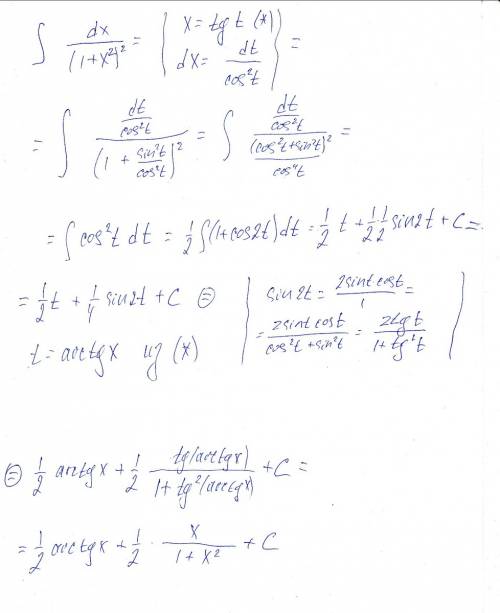 ∫ dx/(1+x²)² = | x = tg t (*) dx = dt/cos²t | =
= ∫ (dt/cos²t)/(1 + sin²t/cos²t)² = ∫ (dt/cos²t)/((cos²t+sin²t)²/cos⁴t) =
= ∫ cos²t dt = 1/2 ∫(1+cos2t)dt = 1/2 t + 1/2 · 1/2 sin2t + C =
= 1/2 t + 1/4 sin2t + C ⊜
t = arctgx из (*)
| sin2t = 2sint cost/1 =
= 2sint cost/(cos²t+sin²t) = 2tg t/(1+tg²t) |
⊜ 1/2 arctgx + 1/2 tg(arctgx)/(1+tg²(arctgx)) + C =
= 1/2 arctgx + 1/2 · x/(1+x²) + C